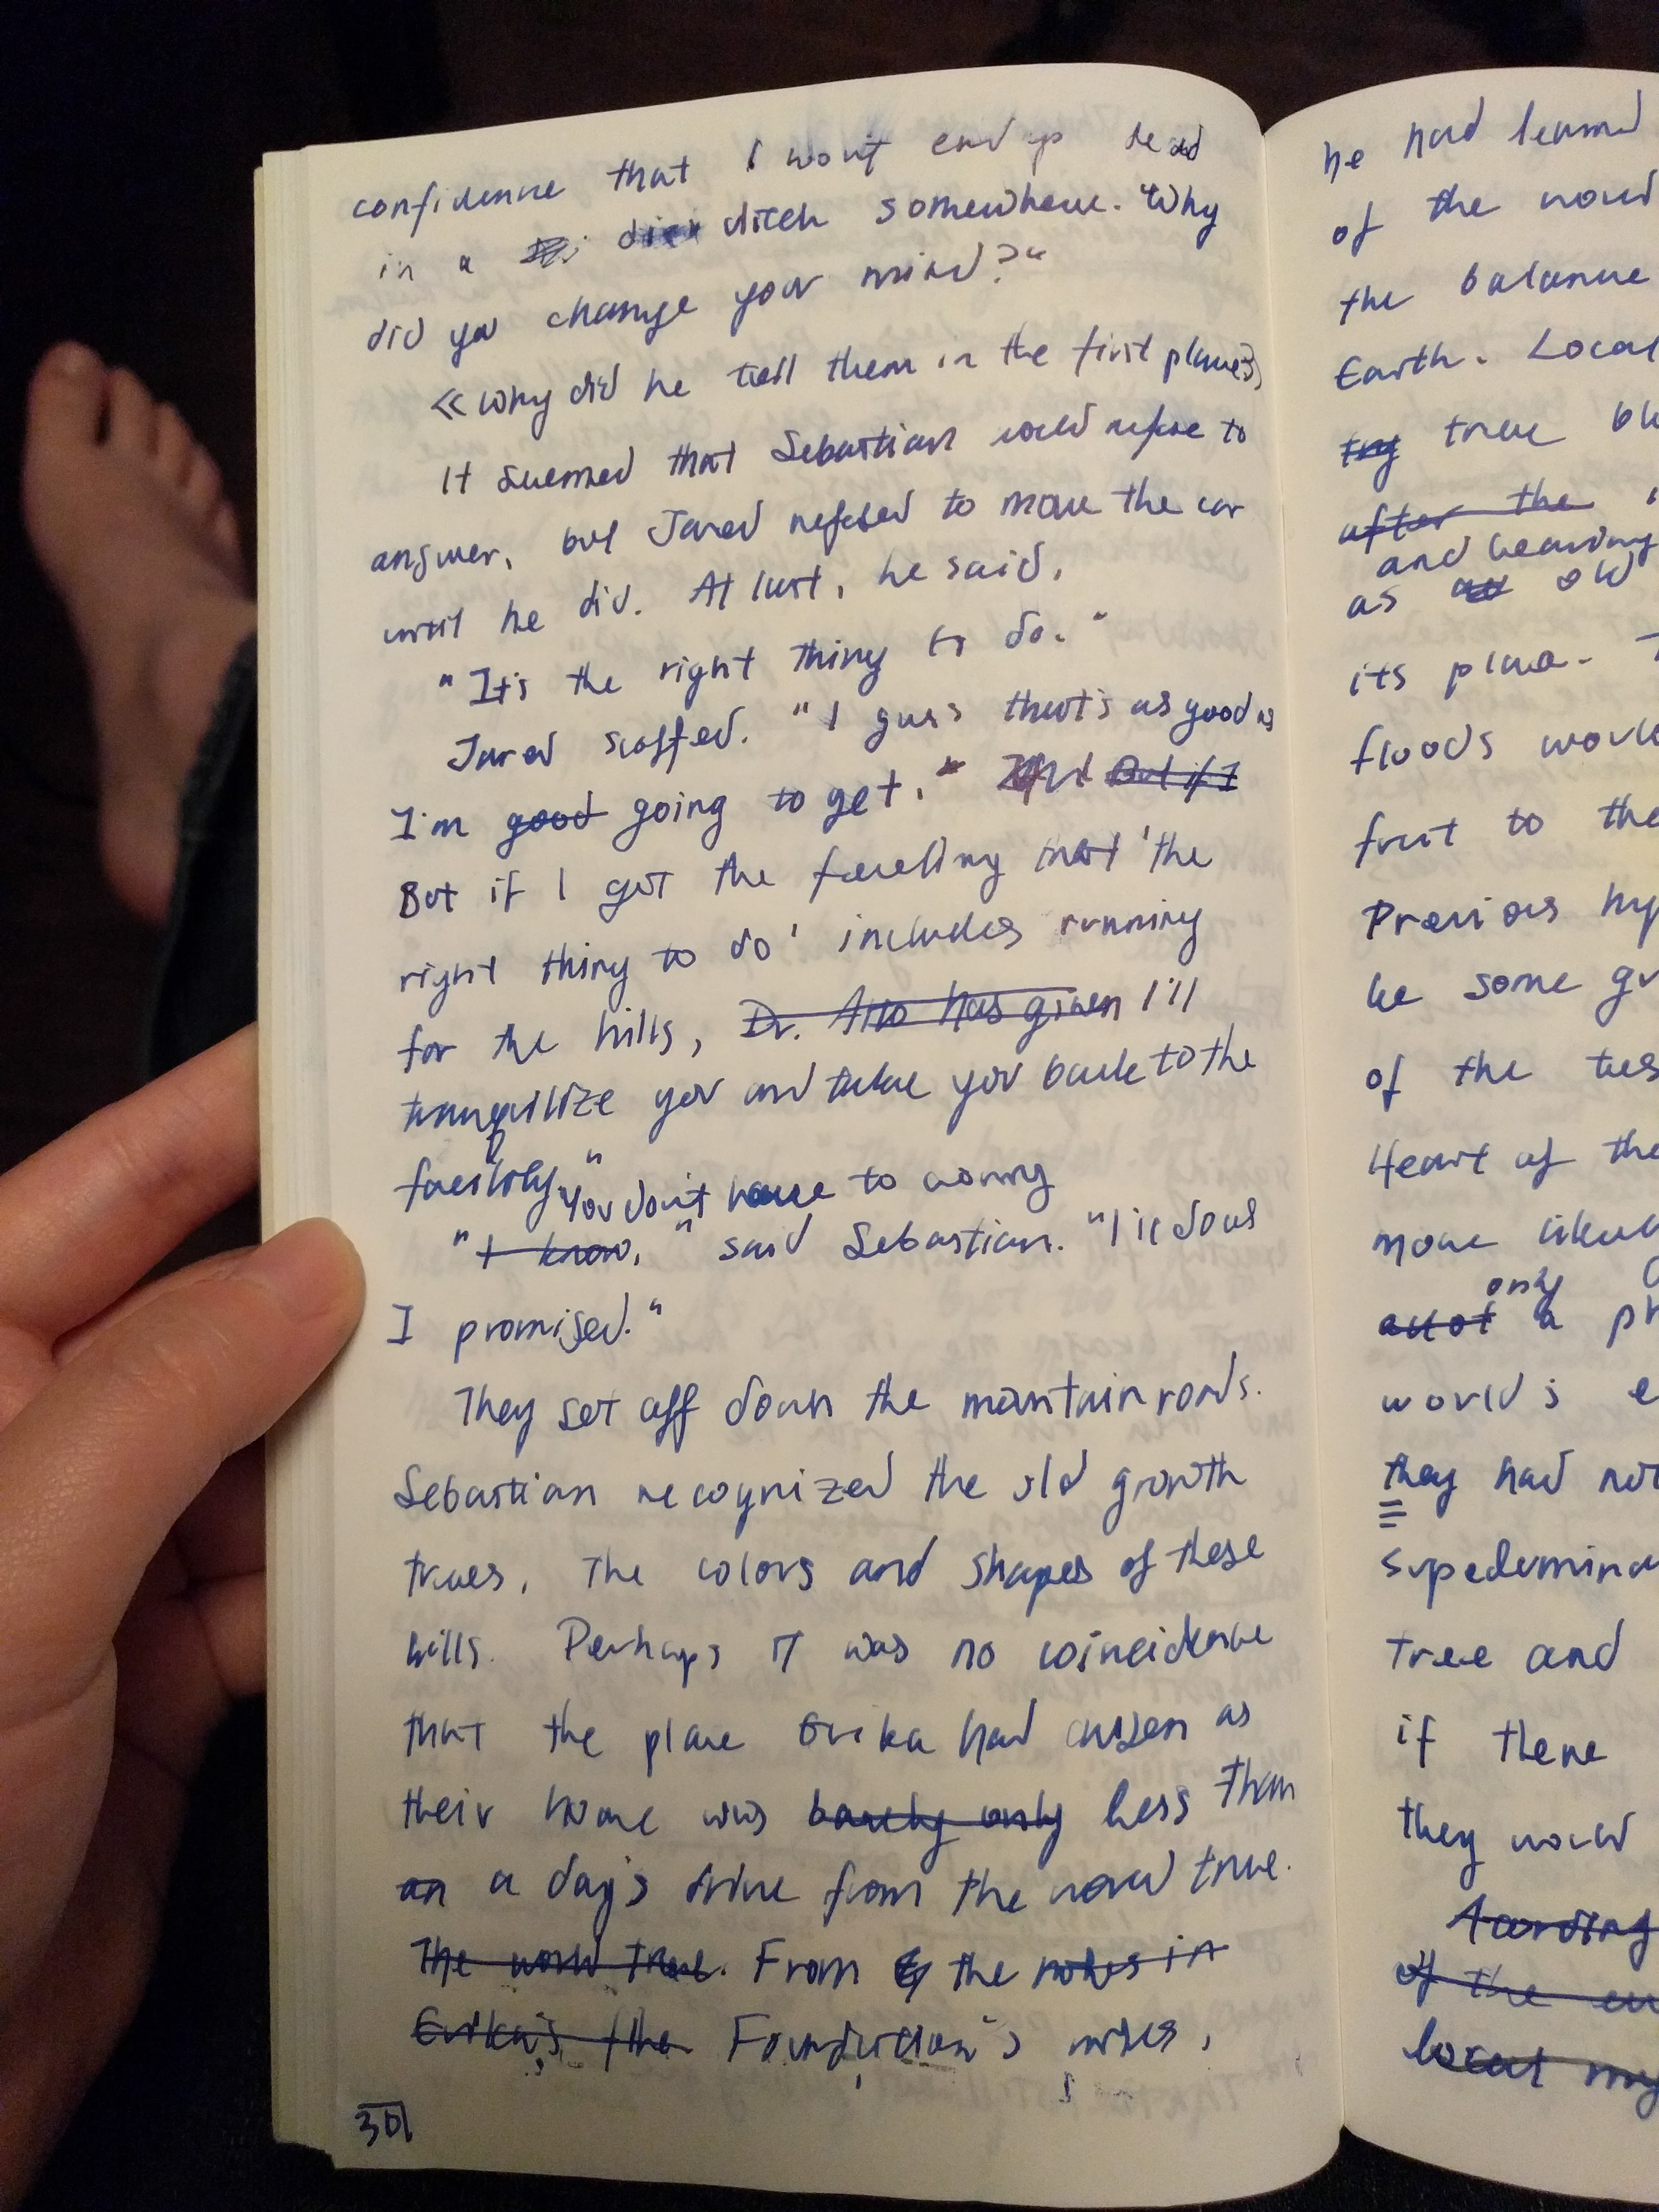 confidence that I won't end up dead
in a ditch somewhere. "Why
did you change your mind?"
«Why did he tell them in the first place?»
It seemed that Sebastian would refuse to
answer, but Jared refused to move the car
until he did. At last, he said,
"It's the right thing to do."
Jared scoffed. "I guess that's as good as
I'm good going to get." But if I
But if I get the feeling that 'the
right thing to do' includes running
for the hills, Dr. has given I'll
tranquilize you and take you back to the
facility."
You don't have to worry
"I know," said Sebastian. "I'll do as
I promised."
They set off down the mountain roads.
Sebastian recognized the old growth
trees, the colors and shapes of these
hills. Perhaps it was no coincidence
that the place Erika had chosen as
their home was barely only less than
an a day's drive from the world tree.
The world tree. From the notes in
Erika's the Foundation's notes,
301
he had learned
of the world
the balance
Earth. Local
try tree
after the
and bearing
as old
its place.
floods would
fruit to the
Previous
be some
of the
Heart of the
more likely
only
a
world's
they had not
tree and
if there
they would
According
of the
local